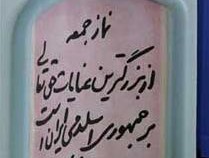 نماز جمعه
از بزرگترین عنایات حق تعالی
بر جمهوری اسلامی ایران است